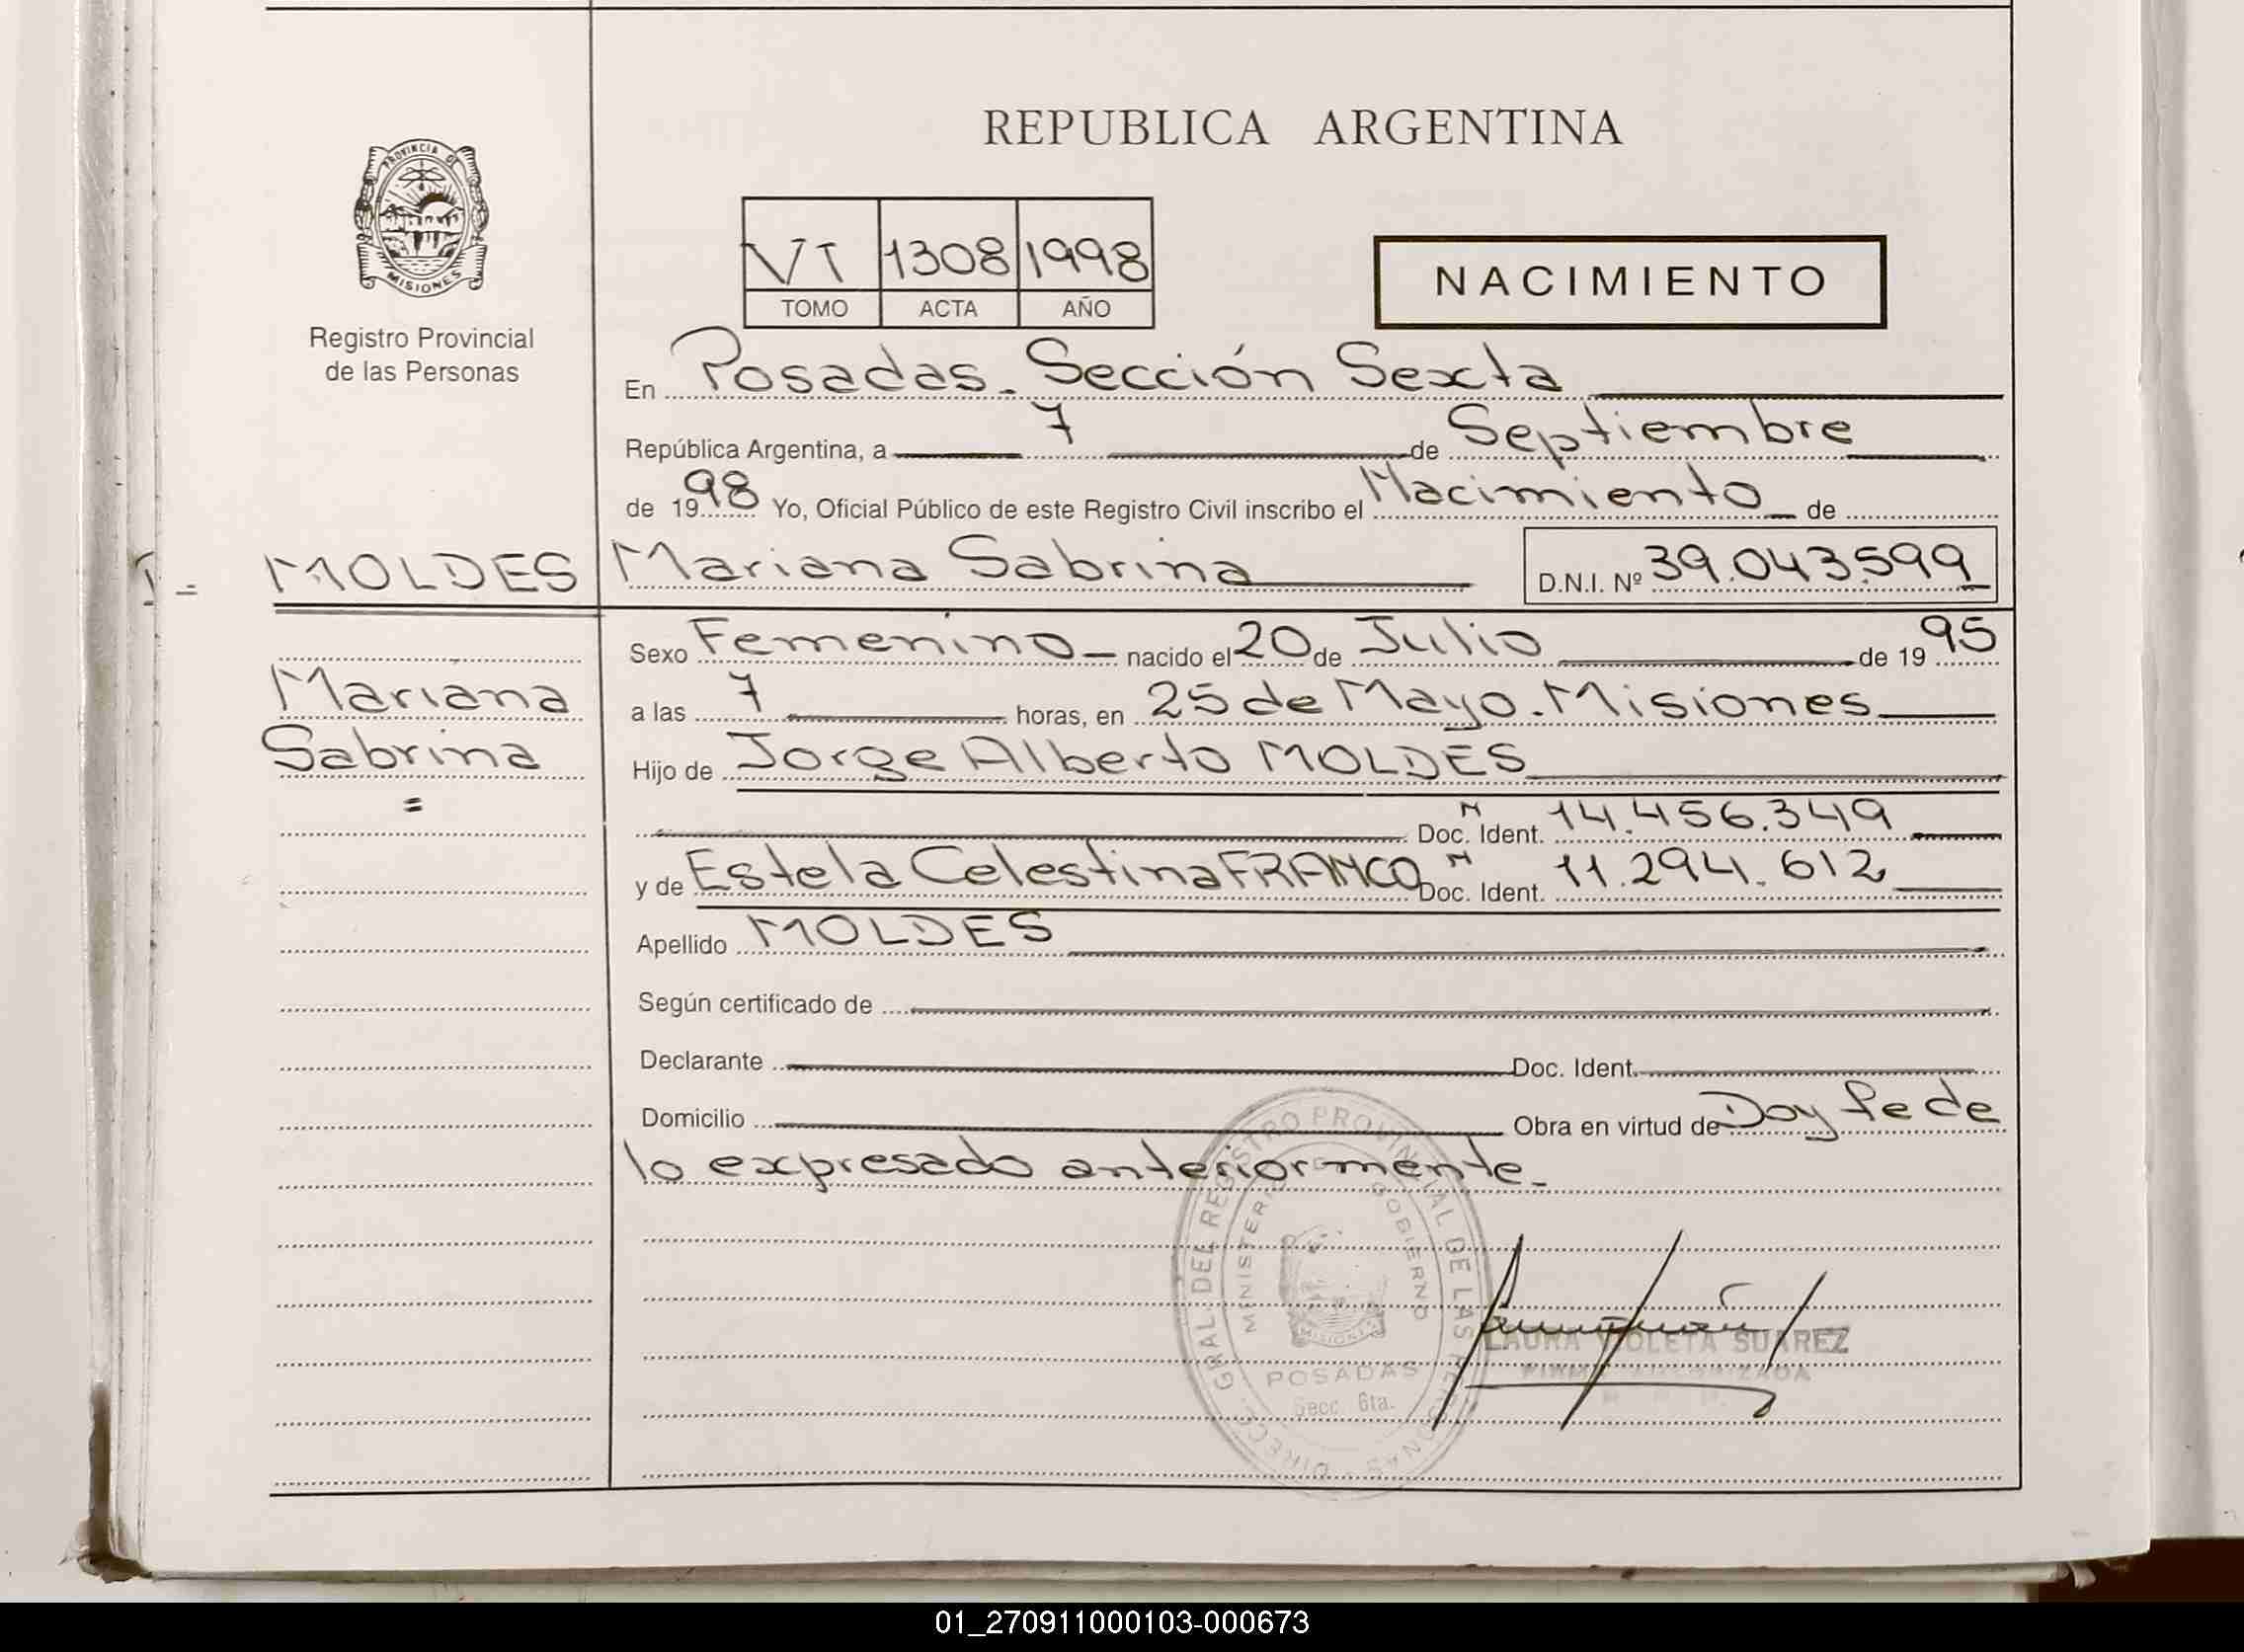 REPUBLICA ARGENTINA
PROVINCIA DE
MISIONES
Registro Provincial
de las Personas
VI 1308 1998
TOMO ACTA AÑO
NACIMIENTO
En Posadas. Sección Sexta
República Argentina, a 7 de Septiembre
de 1998 Yo, Oficial Público de este Registro Civil inscribo el Nacimiento de
MOLDES Mariana Sabrina D.N.I. Nº 39.043.599
Sexo Femenino nacido el 20 de Julio de 1995
Mariana
Sabrina
=
a las 7 horas, en 25 de Mayo. Misiones
Hijo de Jorge Alberto MOLDES
Doc. Ident. N 14.456.349
y de Estela Celestina FRANCO Doc. Ident. N 11.294.612
Apellido MOLDES
Según certificado de
Declarante Doc. Ident.
Domicilio Obra en virtud de Doy fe de
lo expresado anteriormente.
DIRECC. GRAL. DEL REGISTRO PROVINCIAL DE LAS PERSONAS
MINISTERIO DE GOBIERNO
MISIONES
POSADAS
Secc. 6ta.
LAURA VIOLETA SUAREZ
FIRMA AUTORIZADA
01_270911000103-000673